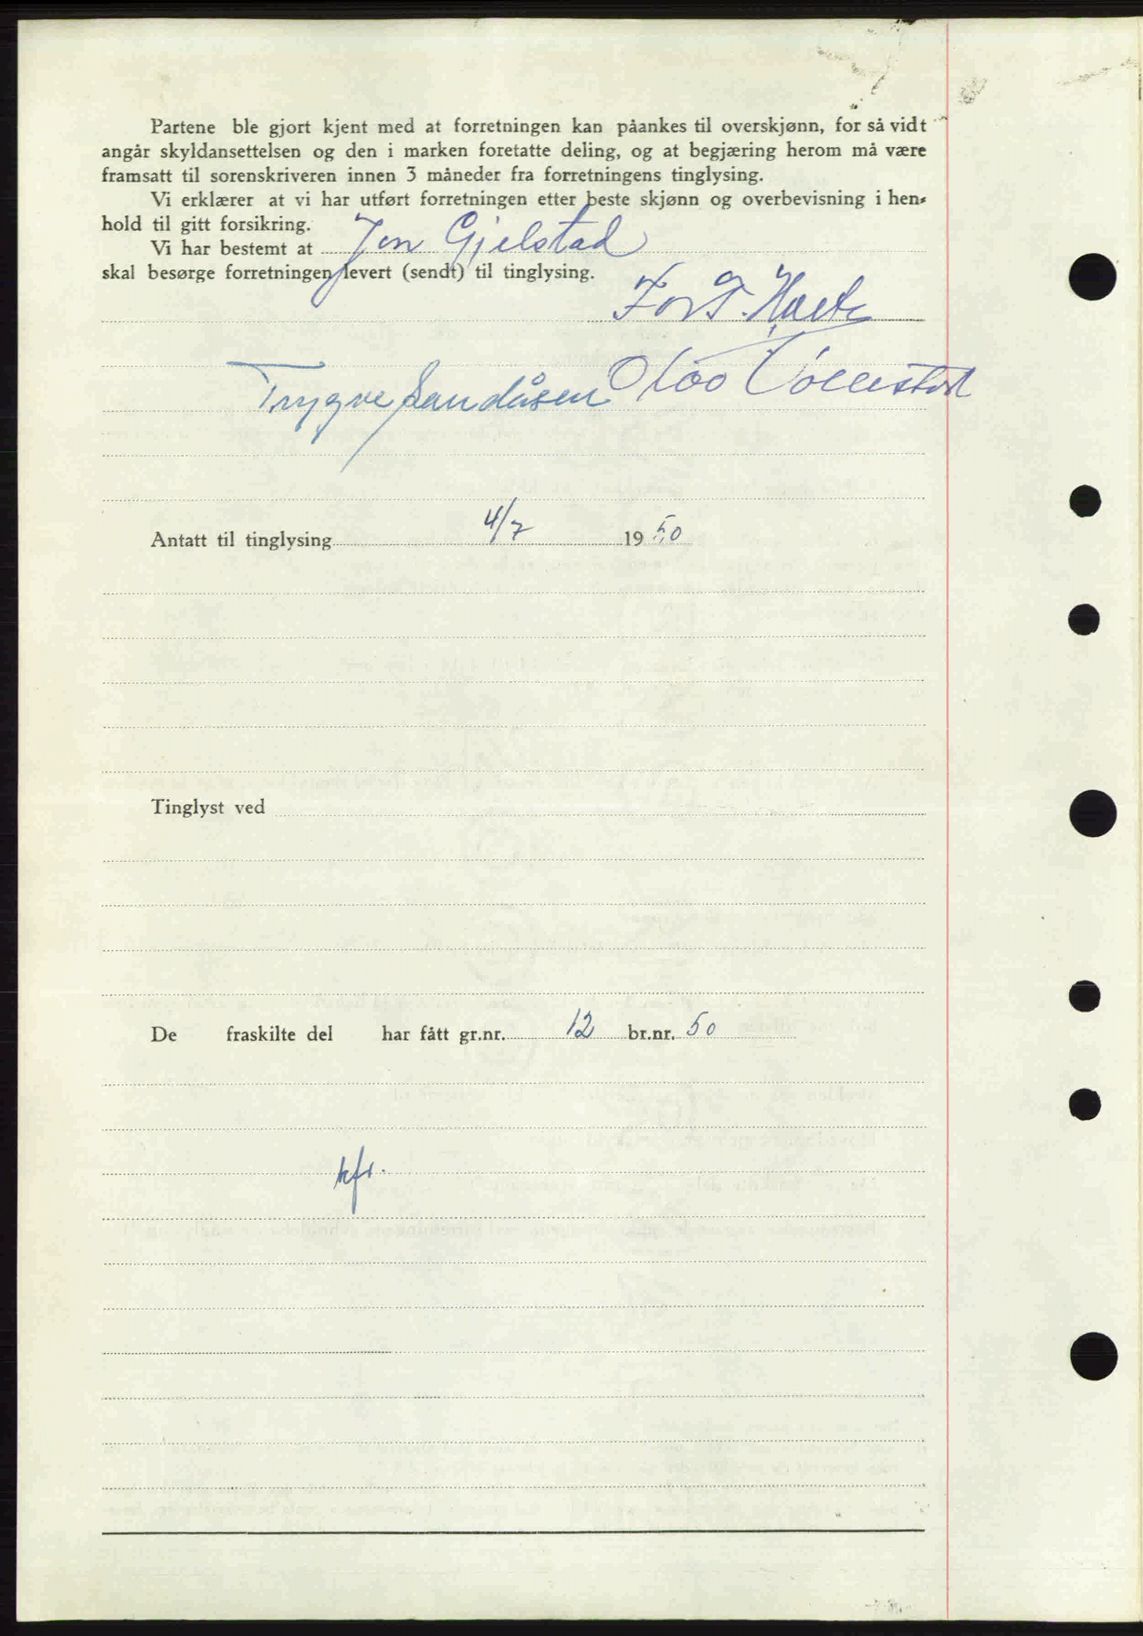 Partene ble gjort kjent med at forretningen kan påankes til overskjønn, for så vidt
angår skyldansettelsen og den i marken foretatte deling, og at begjæring herom må være
framsatt til sorenskriveren innen 3 måneder fra forretningens tinglysing.
Vi erklærer at vi har utført forretningen etter beste skjønn og overbevisning i hen-
hold til gitt forsikring.
Vi har bestemt at Jon Gjelstad
skal besørge forretningen levert (sendt) til tinglysing.
Trygve Sandåsen
Antatt til tinglysing 4/7 1950
Tinglyst ved
De fraskilte del har fått gr.nr. 12 br.nr. 50